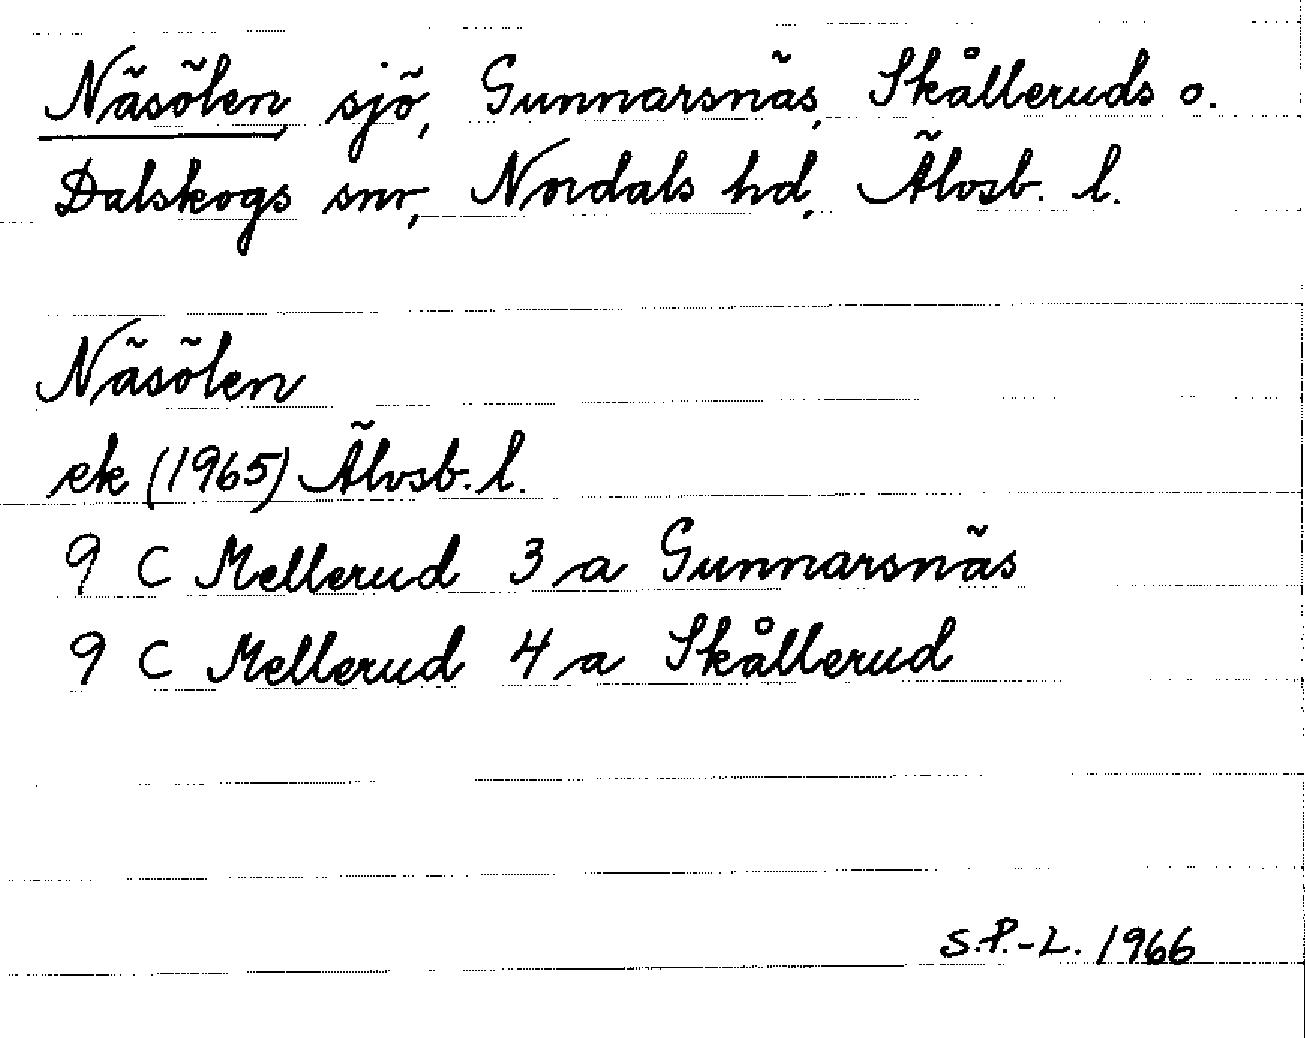 Näsölen, sjö, Gunnarsnäs, Skålleruds o.
Dalskogs snr, Nordals hd, Älvsb. l.
Näsölen
ek (1965) Älvsb. l.
9 C Mellerud 3 a Gunnarsnäs
9 C Mellerud 4 a Skållerud
S.P.-L. 1966